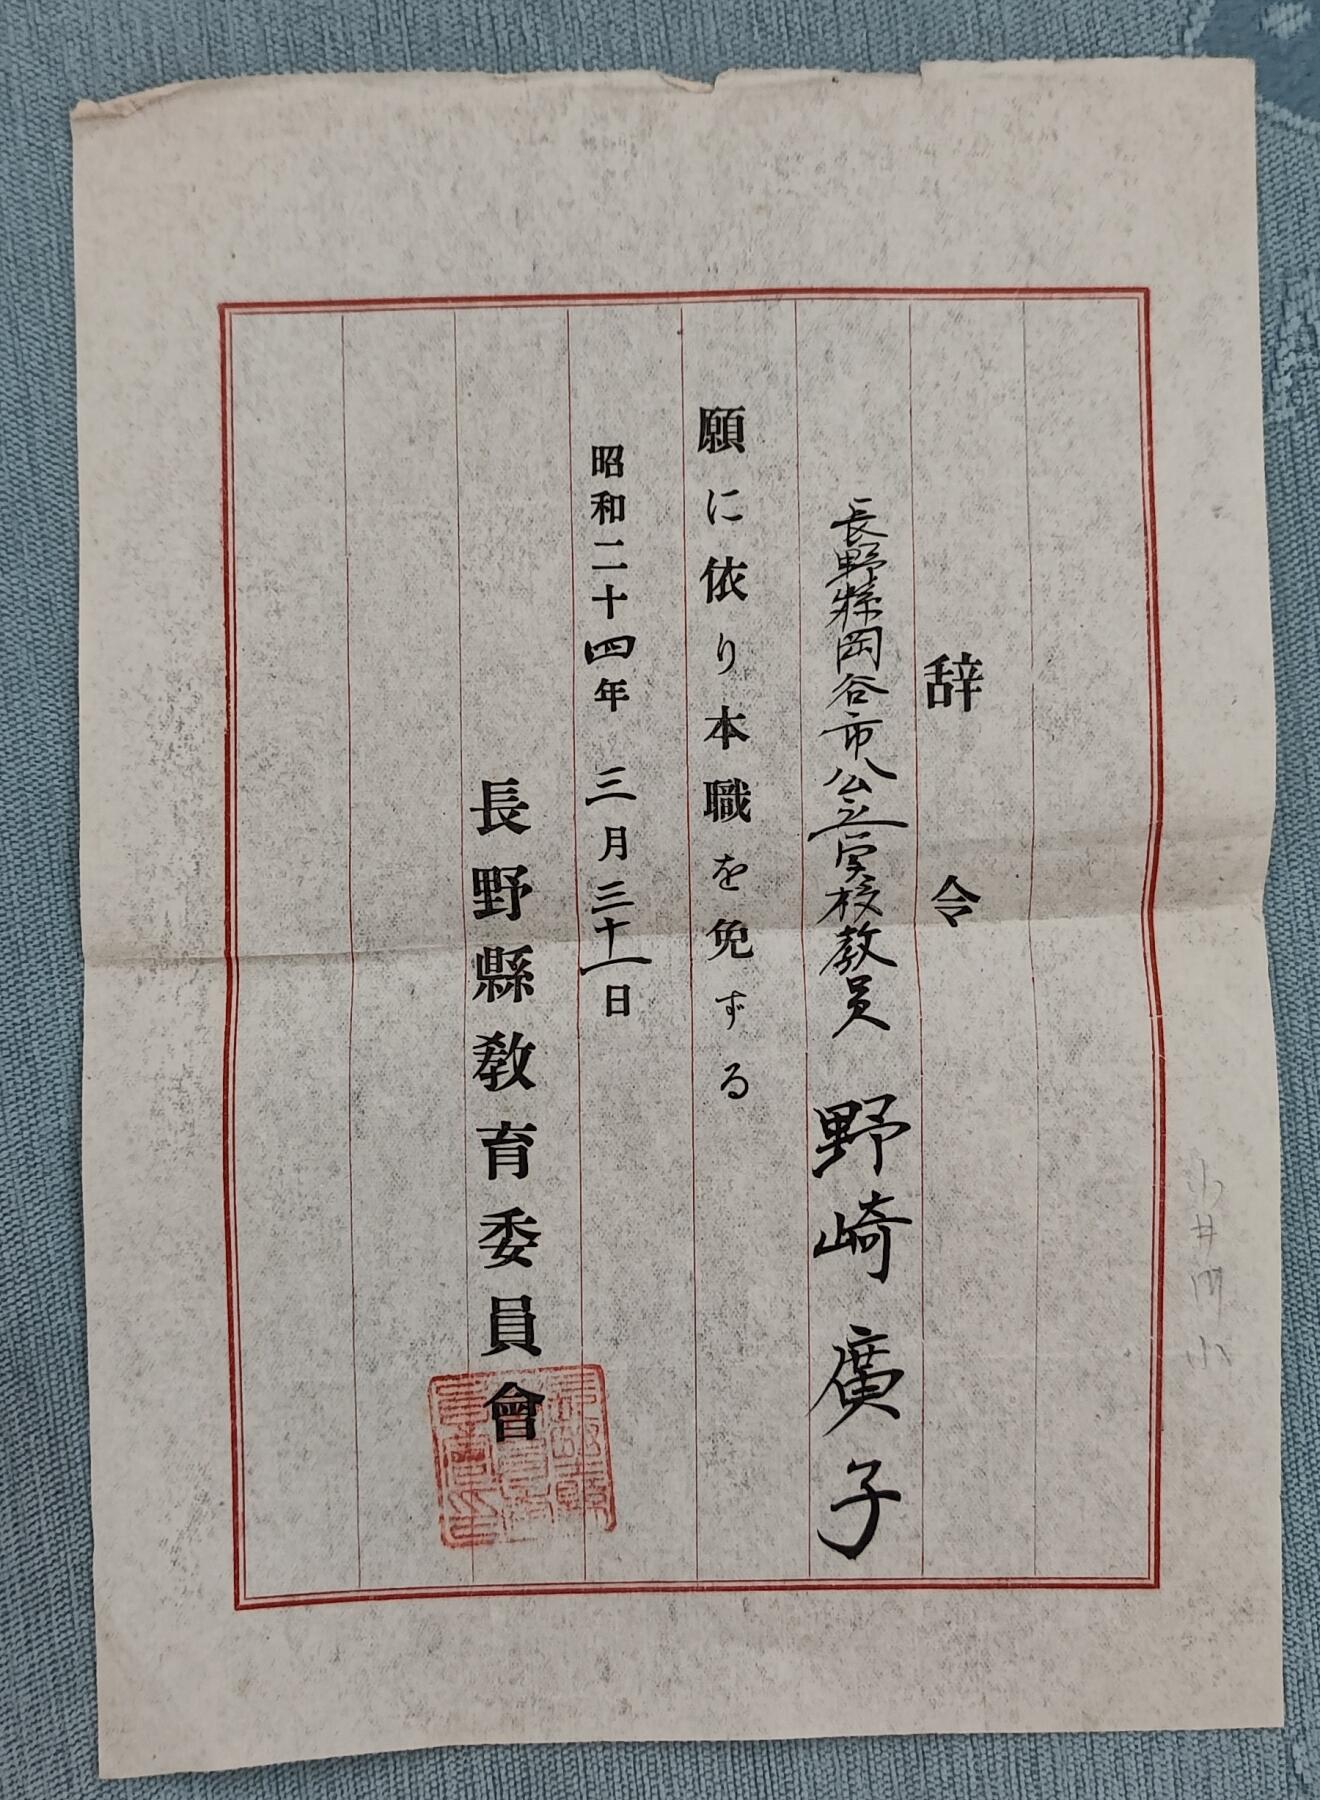 辞令
長野縣岡谷市公立学校教員 野崎廣子
願に依り本職を免ずる
昭和二十四年三月三十一日
長野縣教育委員會
小井川小